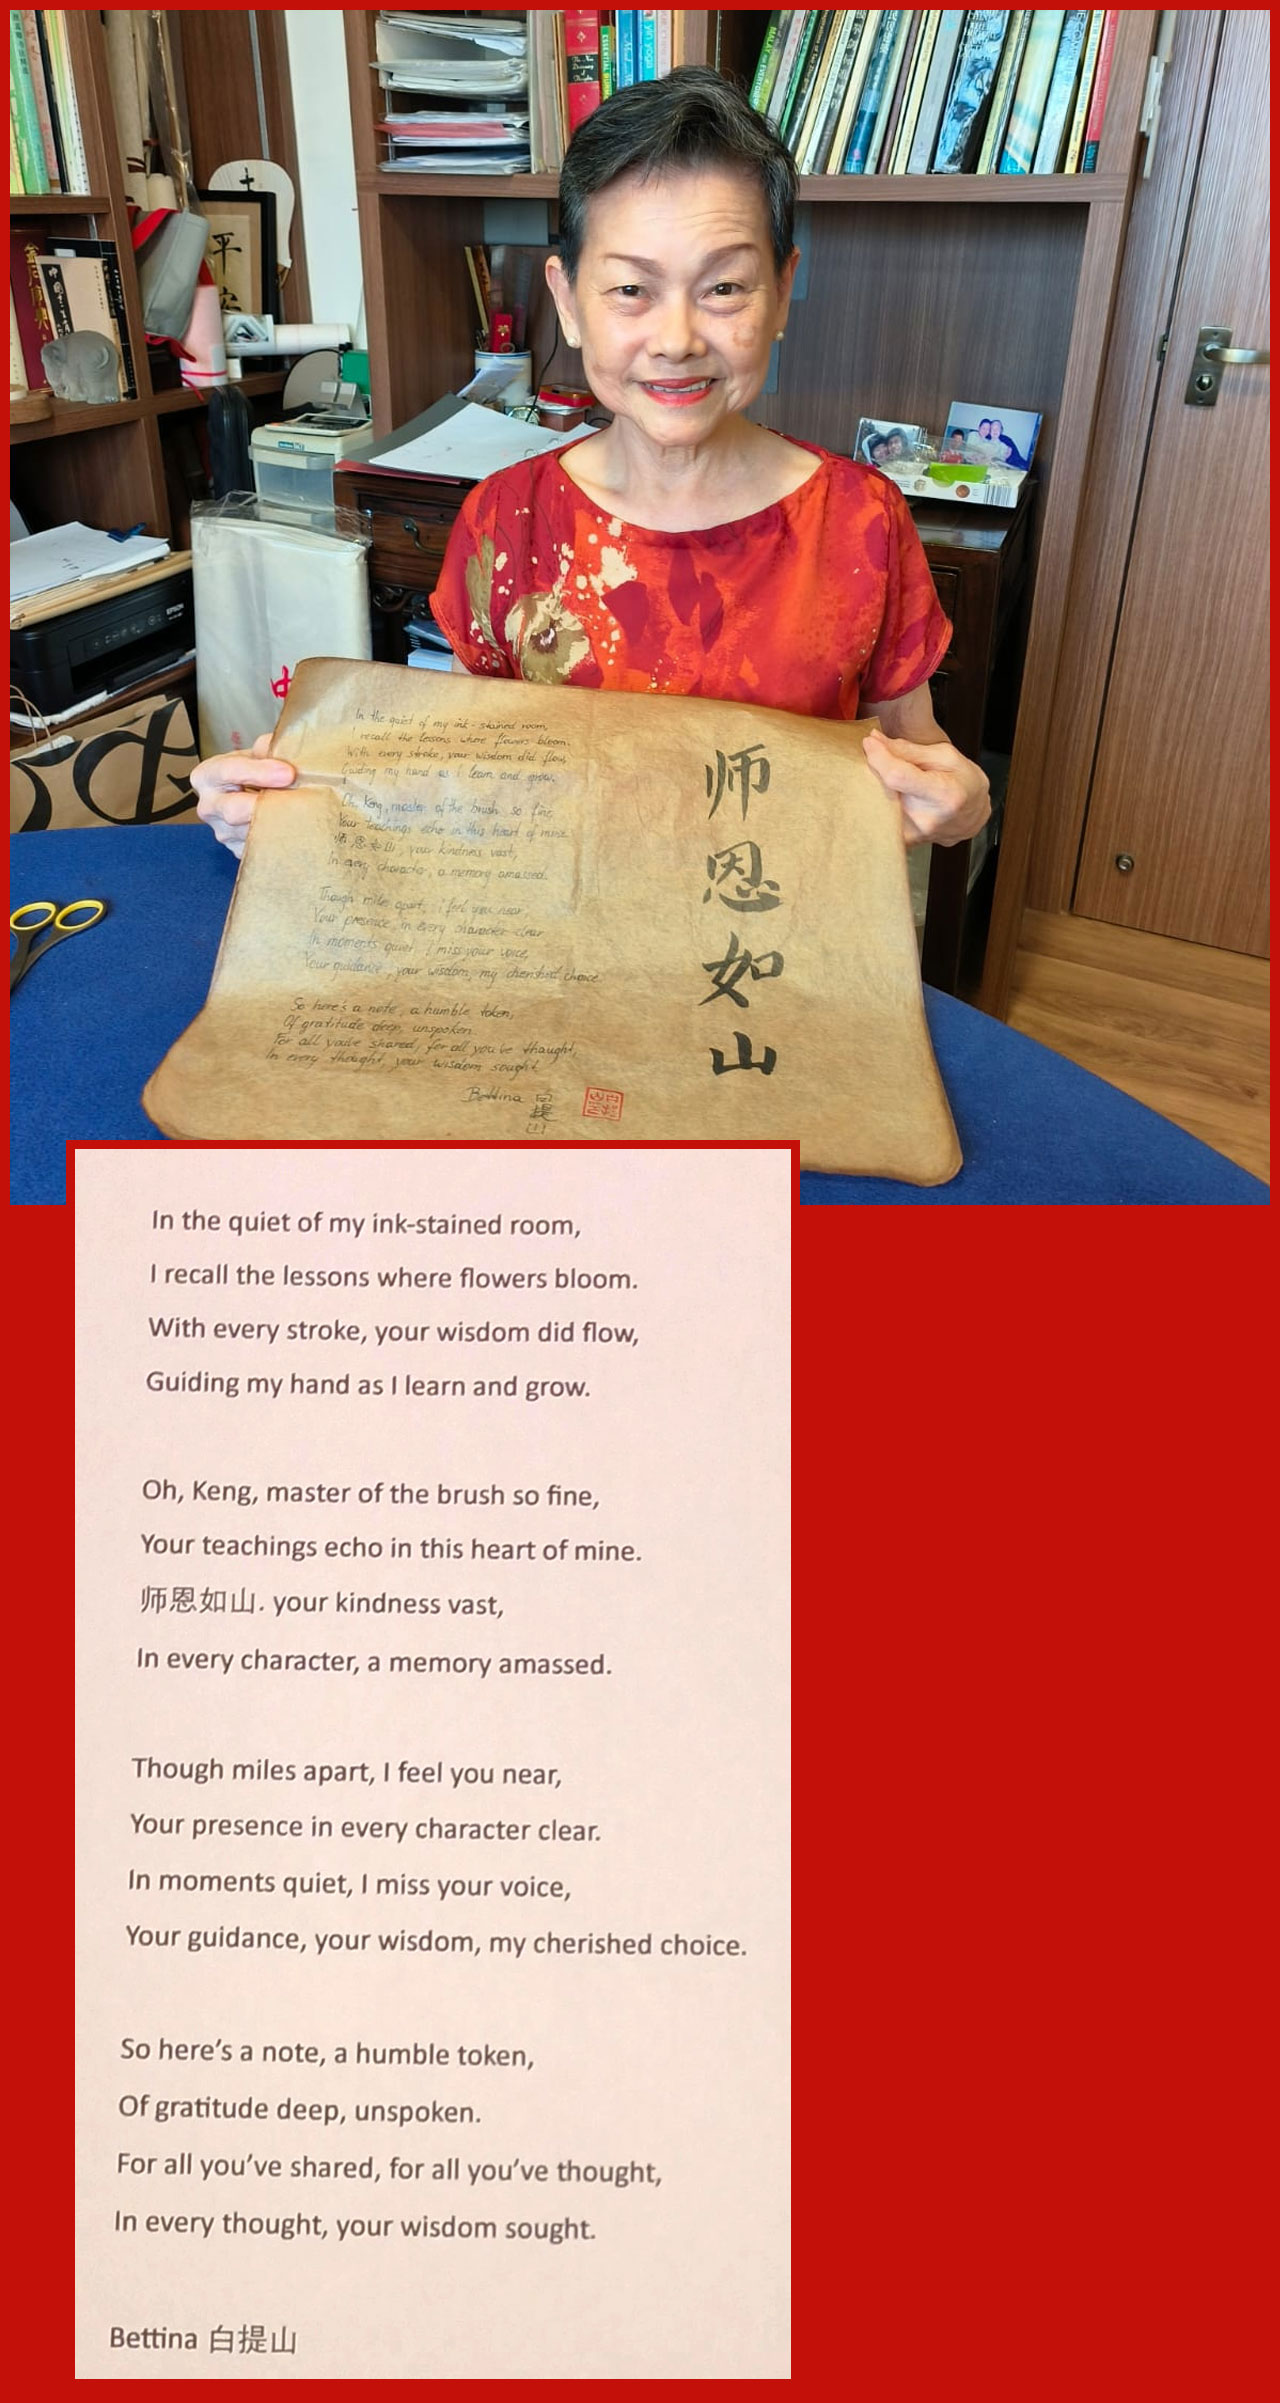 MALAY FOR EVERYONE
yin yoga
平
安
EPSON
In the quiet of my ink-stained room,
I recall the lessons where flowers bloom.
With every stroke, your wisdom did flow,
Guiding my hand as I learn and grow.
Oh, Keng, master of the brush so fine,
Your teachings echo in this heart of mine.
师恩如山, your kindness vast,
In every character, a memory amassed.
Though miles apart, i feel you near,
Your presence, in every character clear
In moments quiet, I miss your voice,
Your guidance, your wisdom, my cherished choice.
So here's a note, a humble token,
Of gratitude deep, unspoken.
For all you've shared, for all you've thought,
In every thought, your wisdom sought.
Bettina 白提山
师恩如山
In the quiet of my ink-stained room,
I recall the lessons where flowers bloom.
With every stroke, your wisdom did flow,
Guiding my hand as I learn and grow.
Oh, Keng, master of the brush so fine,
Your teachings echo in this heart of mine.
师恩如山. your kindness vast,
In every character, a memory amassed.
Though miles apart, I feel you near,
Your presence in every character clear.
In moments quiet, I miss your voice,
Your guidance, your wisdom, my cherished choice.
So here’s a note, a humble token,
Of gratitude deep, unspoken.
For all you’ve shared, for all you’ve thought,
In every thought, your wisdom sought.
Bettina 白提山